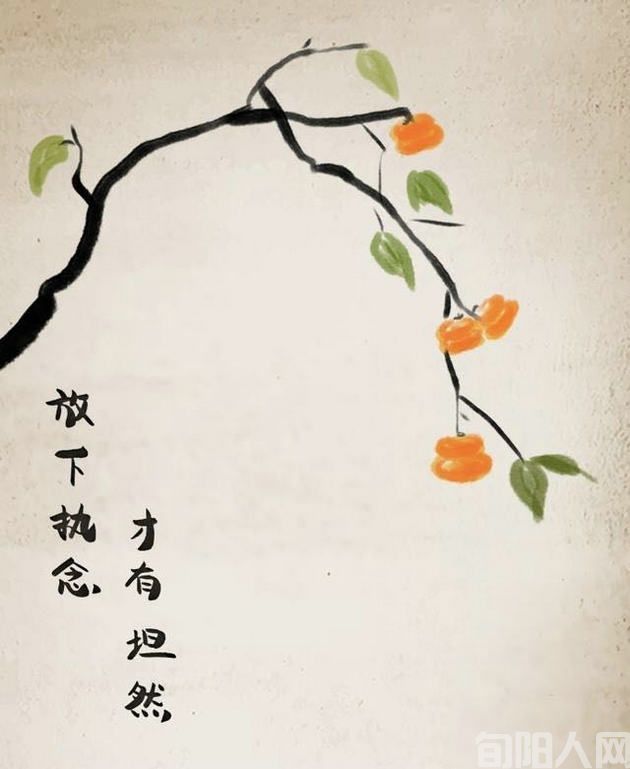 放下执念
才有坦然
旬阳人网